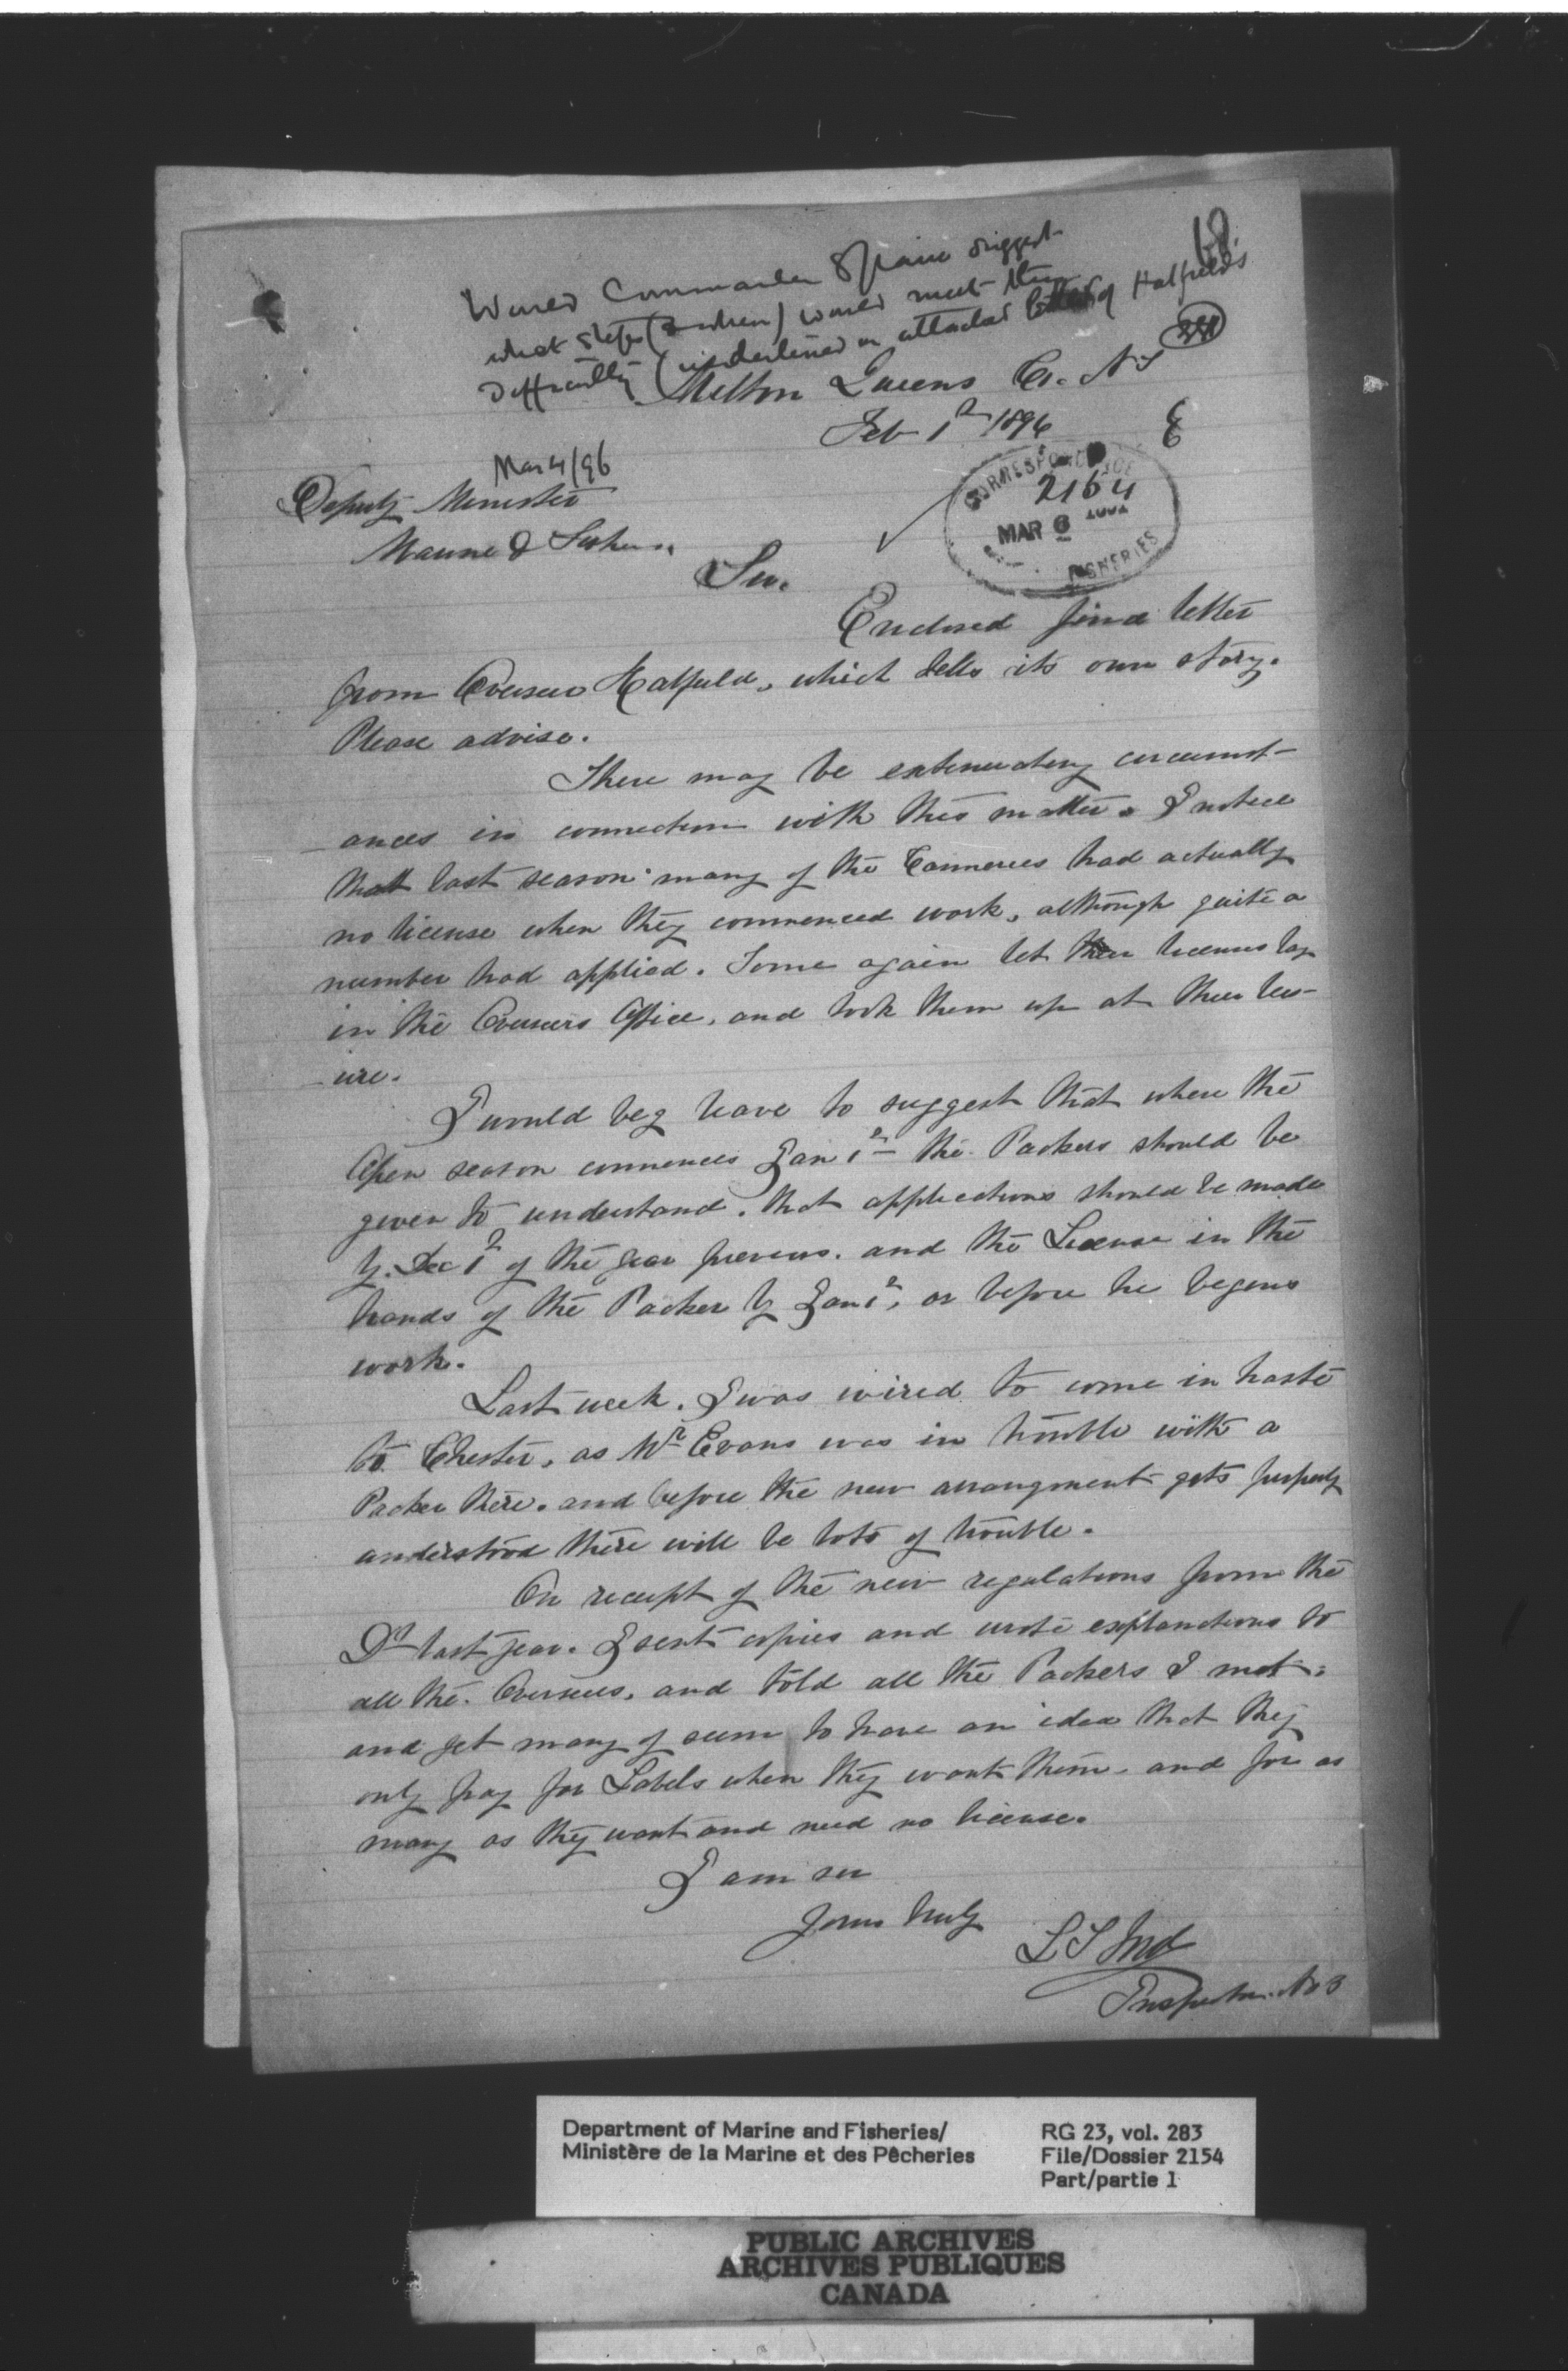 68.
Would Commander Spain suggest
what steps (& when) would meet the
difficulty (underlined on attached letter of Hatfields
Milton Queens Co. N S
Feb 1st 1896
Mar 4/96
Deputy Minister
Marine & Fisheries
CORRESPONDENCE
2154
MAR 6
FISHERIES
Sir.
Enclosed find letter
from Overseer Hatfield, which tells its own story.
Please advise.
There may be extenuating circumst-
-ances in connection with this matter. I notice
that last season many of the Canneries had actually
no license when they commenced work, although quite a
number had applied. Some again let their licenses lay
in the Overseers Office, and took them up at their leis-
-ure.
I would beg leave to suggest that where the
Open season commences Jan 1st the Packers should be
given to understand, that applications should be made
by Dec 1st of the year previous. and the License in the
hands of the Packer by Jan 1st, or before he begins
work.
Last week. I was wired to come in haste
to Chester, as Mr Evans was in trouble with a
Packer there. and before the new arrangment gets properly
understood there will be lots of trouble.
On receipt of the new regulations from the
Dt last year. I sent copies and wrote explanations to
all the Overseers, and told all the Packers I met.
and yet many of seem to have an idea that they
only pay for Labels when they want them - and for as
many as they want and need no license.
I am sir
Yours truly
L S Ford
Inspector. No 3
Department of Marine and Fisheries/
Ministère de la Marine et des Pêcheries
RG 23, vol. 283
File/Dossier 2154
Part/partie 1
PUBLIC ARCHIVES
ARCHIVES PUBLIQUES
CANADA